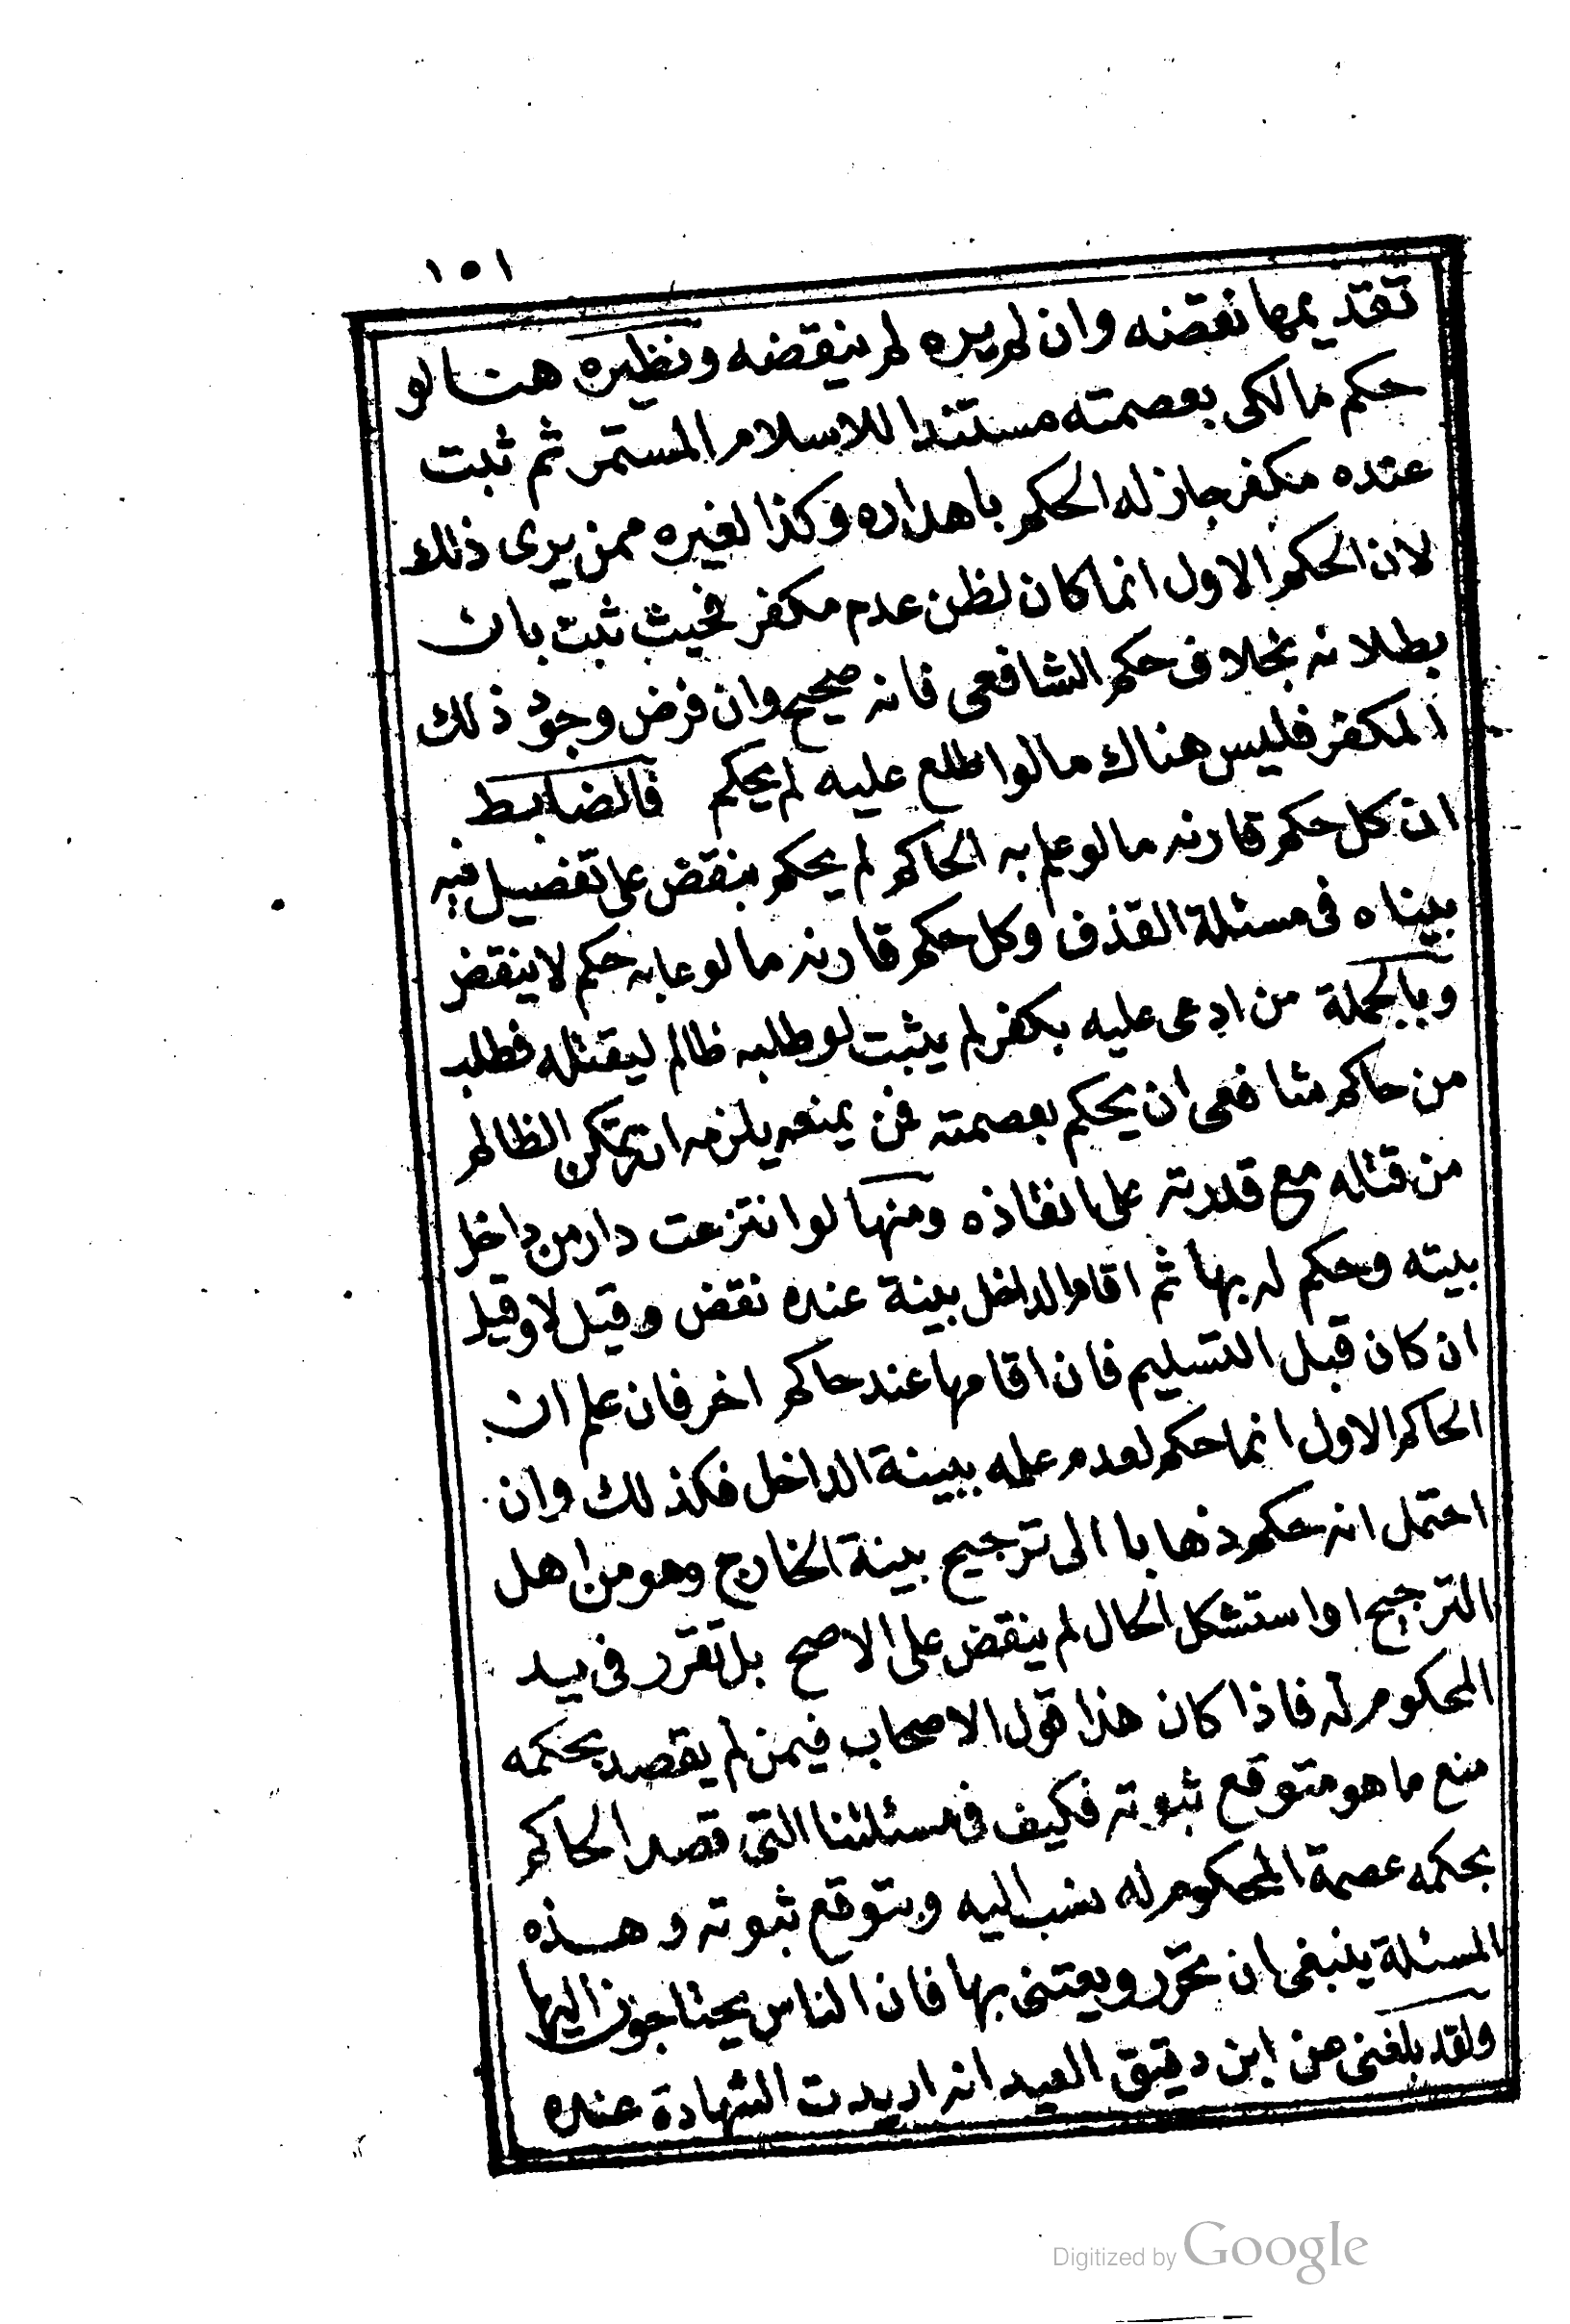 ١٥١
تقديمها نقضه وان لم يره لم ينقضه ونظيره هنا لو
حكم مالكى بعصمته مستندا للاسلام المستمر ثم ثبت
عنده مكفر جاز له الحكم باهداره وكذا لغيره ممن يرى ذلك
لان الحكم الاول انما كان لظن عدم مكفر فحيث ثبت بان
بطلانه بخلاف حكم الشافعى فانه صحيح وان فرض وجود ذلك
المكفر فليس هناك ما لو اطلع عليه لم يحكم فالضابط
ان كل حكم قارنه ما لو علم به الحاكم لم يحكم ينقض على تفصيل فيه
بيناه فى مسئلة القذف وكل حكم قارنه ما لو علم به حكم لا ينقض
وبالجملة من ادعى عليه بكفر لم يثبت لو طلبه ظالم ليقتله فطلب
من حاكم شافعى ان يحكم بعصمته فمن يمنعه يلزمه انه يمكن الظالم
من قتله مع قدرته على انقاذه ومنها لو انتزعت دار من داخل
ببينه وحكم له بها ثم اقام الداخل بينة عنده نقض وقيل لا وقيل
ان كان قبل التسليم فان اقامها عند حاكم اخر فان علم ان
الحاكم الاول انما حكم لعدم علمه ببينة الداخل فكذلك وان
احتمل انه حكم ذهابا الى ترجيح بينة الخارج وهو من اهل
الترجيح او استشكل الحال لم ينقض على الاصح بل تقرر فى يد
المحكوم له فاذا كان هذا قول الاصحاب فيمن لم يقصد بحكمه
منع ما هو متوقع ثبوته فكيف فى مسئلتنا التى قصد الحاكم
بحكمه عصمة المحكوم له نسب اليه ويتوقع ثبوته وهذه
المسئلة ينبغى ان تحرر ويعتنى بها فان الناس يحتاجون اليها
ولقد بلغنى عن ابن دقيق العيد انه اريدت الشهادة عنده
Digitized by Google